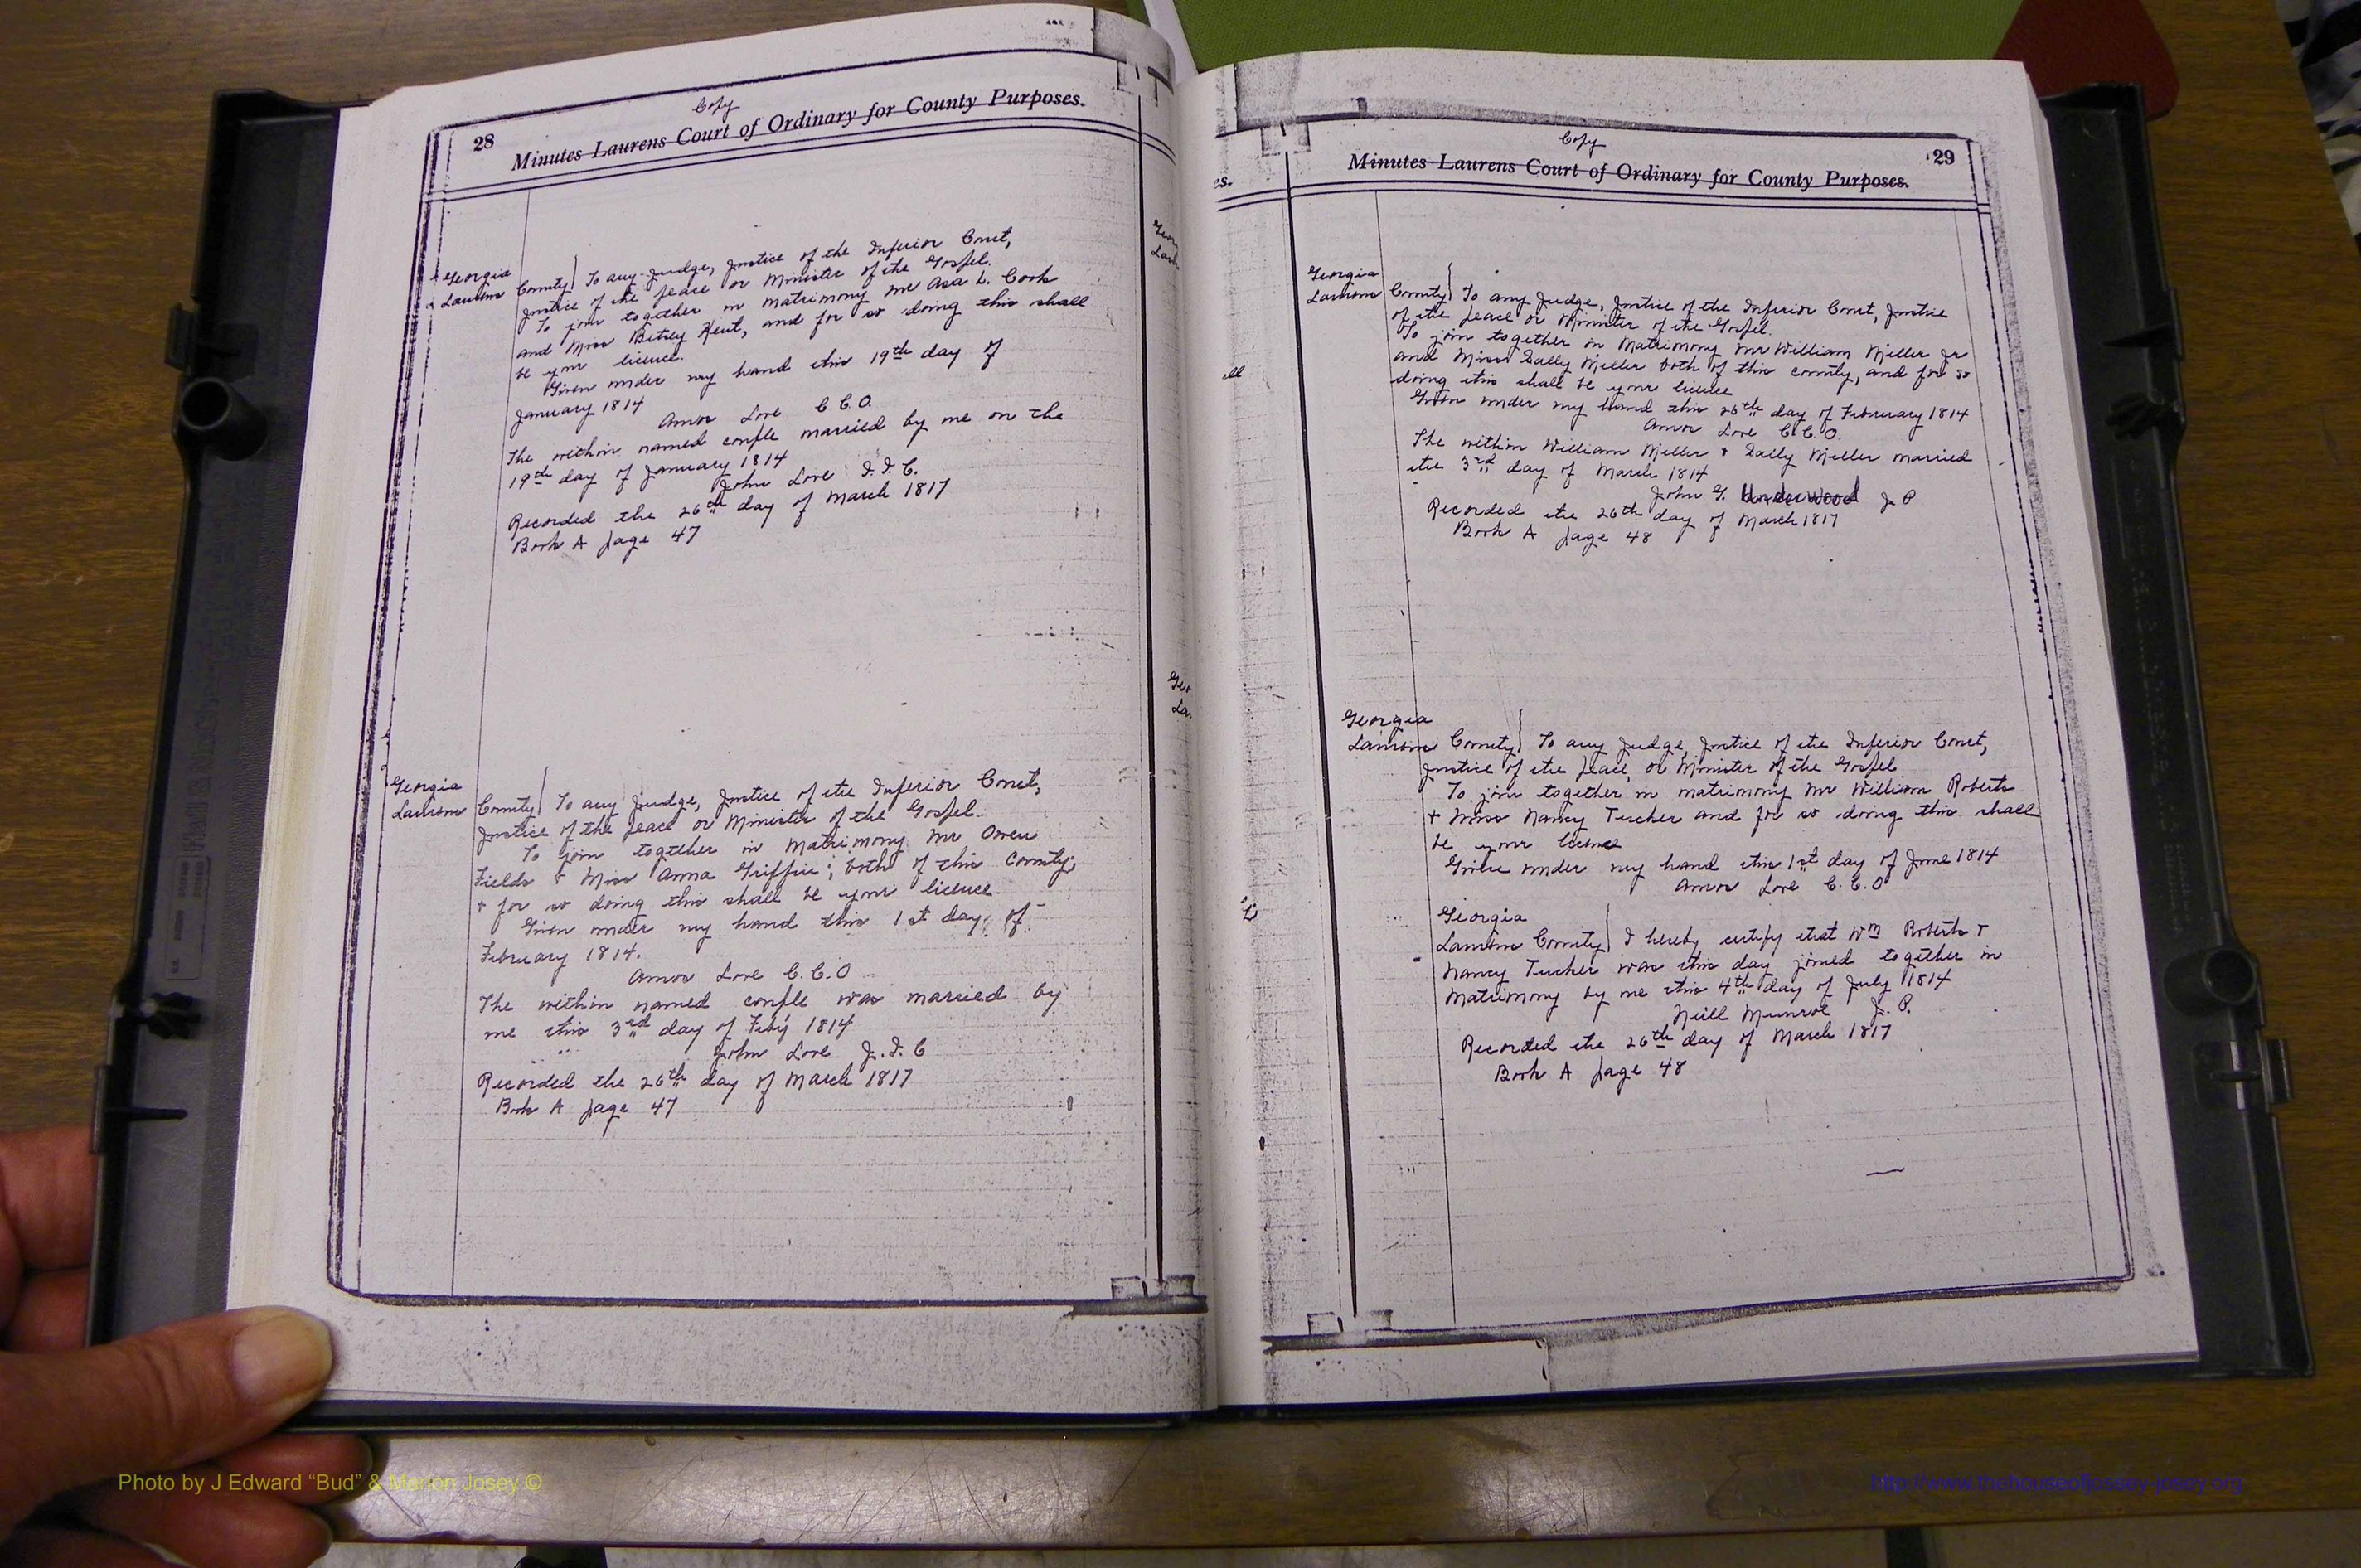 Copy
28
Minutes Laurens Court of Ordinary for County Purposes.
Georgia
Laurens County } To any Judge, Justice of the Inferior Court,
Justice of the peace or Minister of the Gospel.
To join together in matrimony Mr Asa L. Cook
and Miss Betsey Kent, and for so doing this shall
be your licence.
Given under my hand this 19th day of
January 1814
Amos Love C.C.O.
The within named couple married by me on the
19th day of January 1814
John Love J.I.C.
Recorded the 26th day of March 1817
Book A page 47
Georgia
Laurens County } To any Judge, Justice of the Inferior Court,
Justice of the peace or Minister of the Gospel.
To join together in Matrimony Mr Owen
Fields + Miss Anna Griffin; both of this County;
+ for so doing this shall be your licence
Given under my hand this 1st day of
February 1814.
Amos Love C.C.O
The within named couple was married by
me this 3rd day of Feby 1814
John Love J.I.C
Recorded the 26th day of March 1817
Book A page 47
Copy
29
Minutes Laurens Court of Ordinary for County Purposes.
Georgia
Laurens County } To any Judge, Justice of the Inferior Court, Justice
of the peace or Minister of the Gospel.
To join together in Matrimony Mr William Miller Jr
and Miss Sally Miller both of this county, and for so
doing this shall be your licence
Given under my hand this 25th day of February 1814
Amos Love C.C.O.
The within William Miller + Sally Miller married
the 3rd day of March 1814
John G. Underwood J P
Recorded the 26th day of March 1817
Book A page 48
Georgia
Laurens County } To any Judge, Justice of the Inferior Court,
Justice of the peace, or Minister of the Gospel
To join together in matrimony Mr William Roberts
+ Miss Nancy Tucker and for so doing this shall
be your licence
Given under my hand this 1st day of June 1814
Amos Love C.C.O
Georgia
Laurens County } I hereby certify that Wm Roberts +
Nancy Tucker was this day joined together in
Matrimony by me this 4th day of July 1814
Neill Munroe J.P.
Recorded the 26th day of March 1817
Book A page 48
Photo by J Edward “Bud” & Marion Josey ©
http://www.thehouseofjossey-josey.org